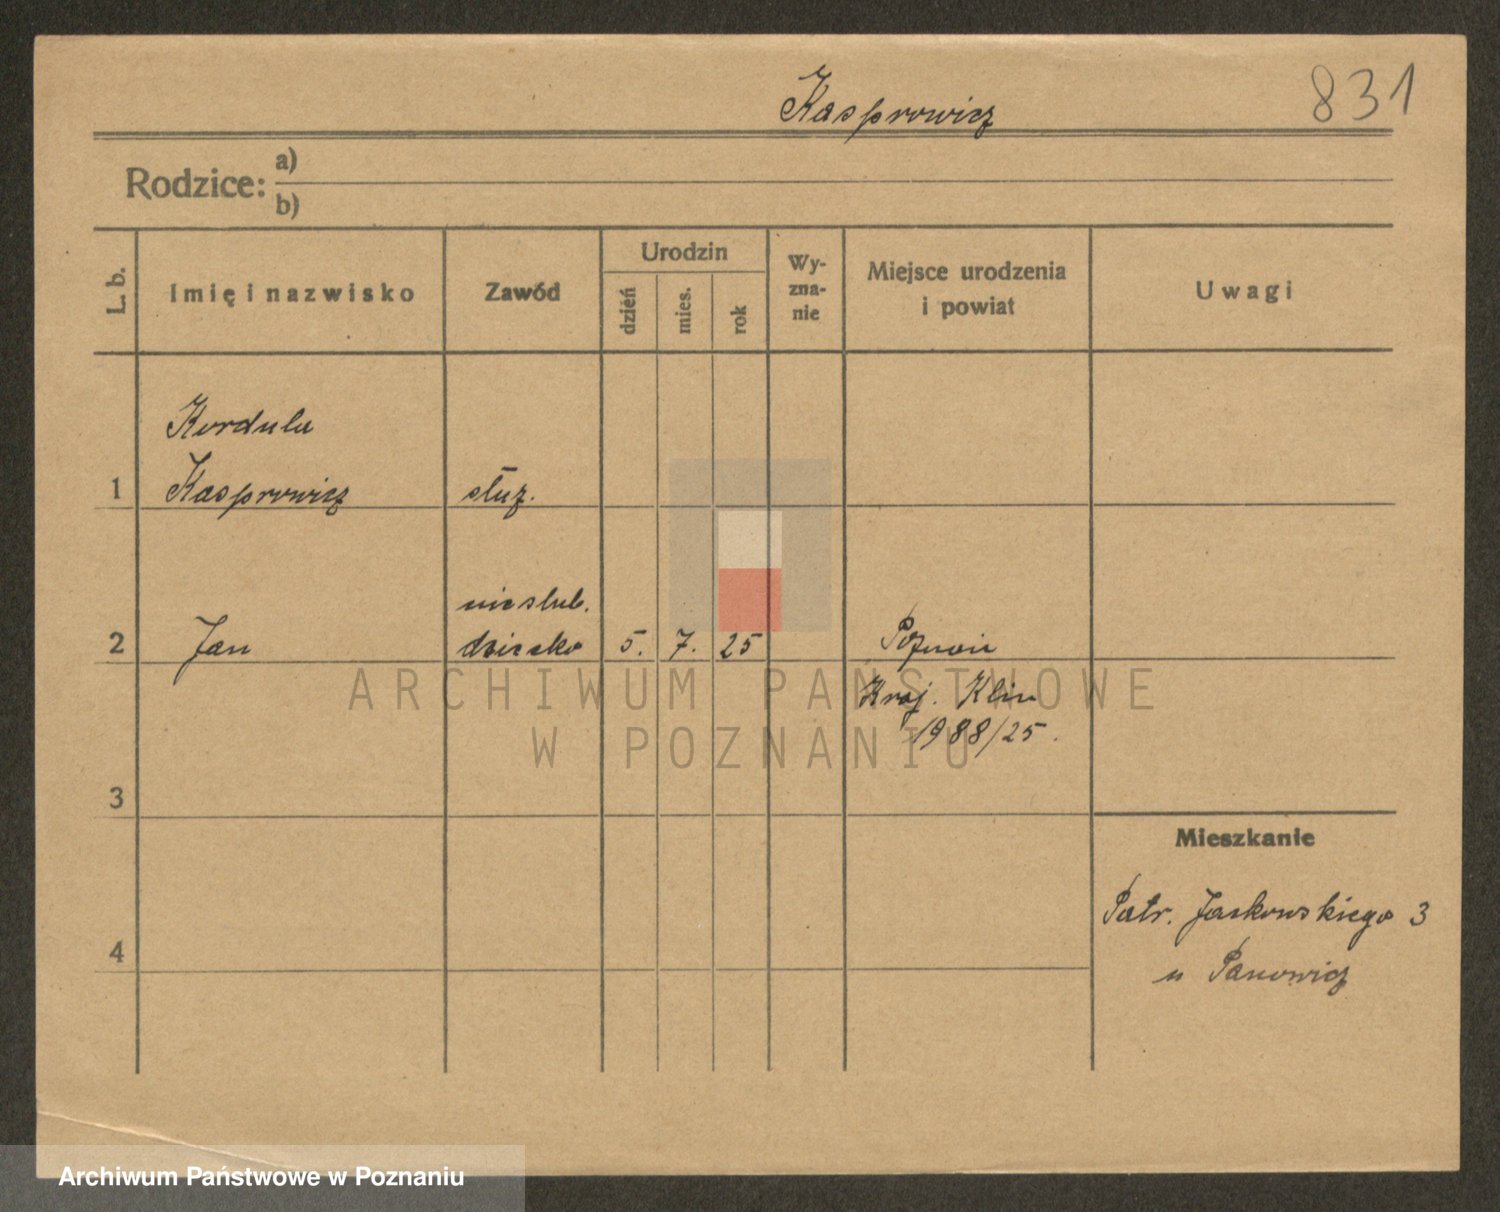 Kasprowicz
831
Rodzice: a)
b)
L. b.
Imię i nazwisko
Zawód
Urodzin
dzień
mies.
rok
Wy-
zna-
nie
Miejsce urodzenia
i powiat
Uwagi
Kordula
1 Kasprowicz służ.
nieślub.
2 Jan dziecko 5. 7. 25 Poznań
Kraj. Klin
1988/25.
3
Mieszkanie
Patr. Jackowskiego 3
4
u Panowicz
ARCHIWUM PAŃSTWOWE
W POZNANIU
Archiwum Państwowe w Poznaniu